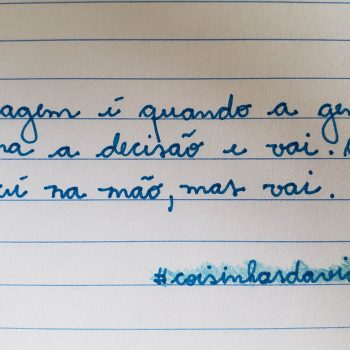 agem é quando a gen
a a decisão e vai.
cú na mão, mas vai.
#coisinhasdavei